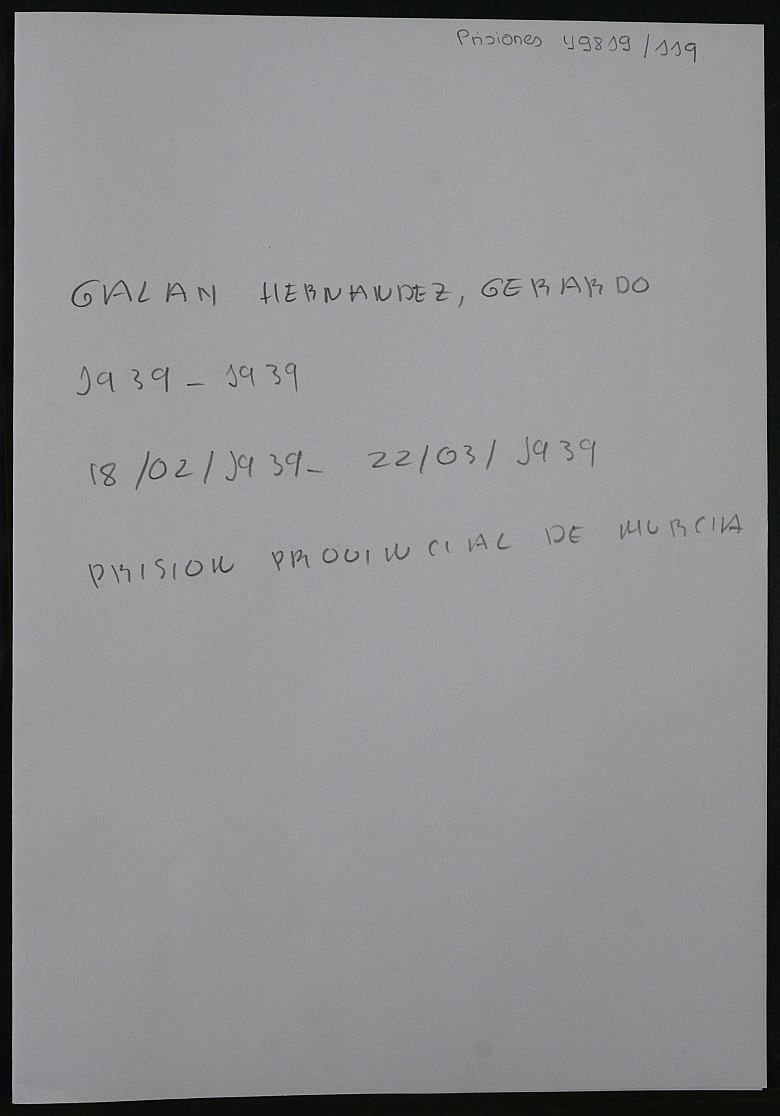 Prisiones 49819/119
GALAN HERNANDEZ, GERARDO
1939 - 1939
18/02/1939- 22/03/1939
PRISION PROVINCIAL DE MURCIA